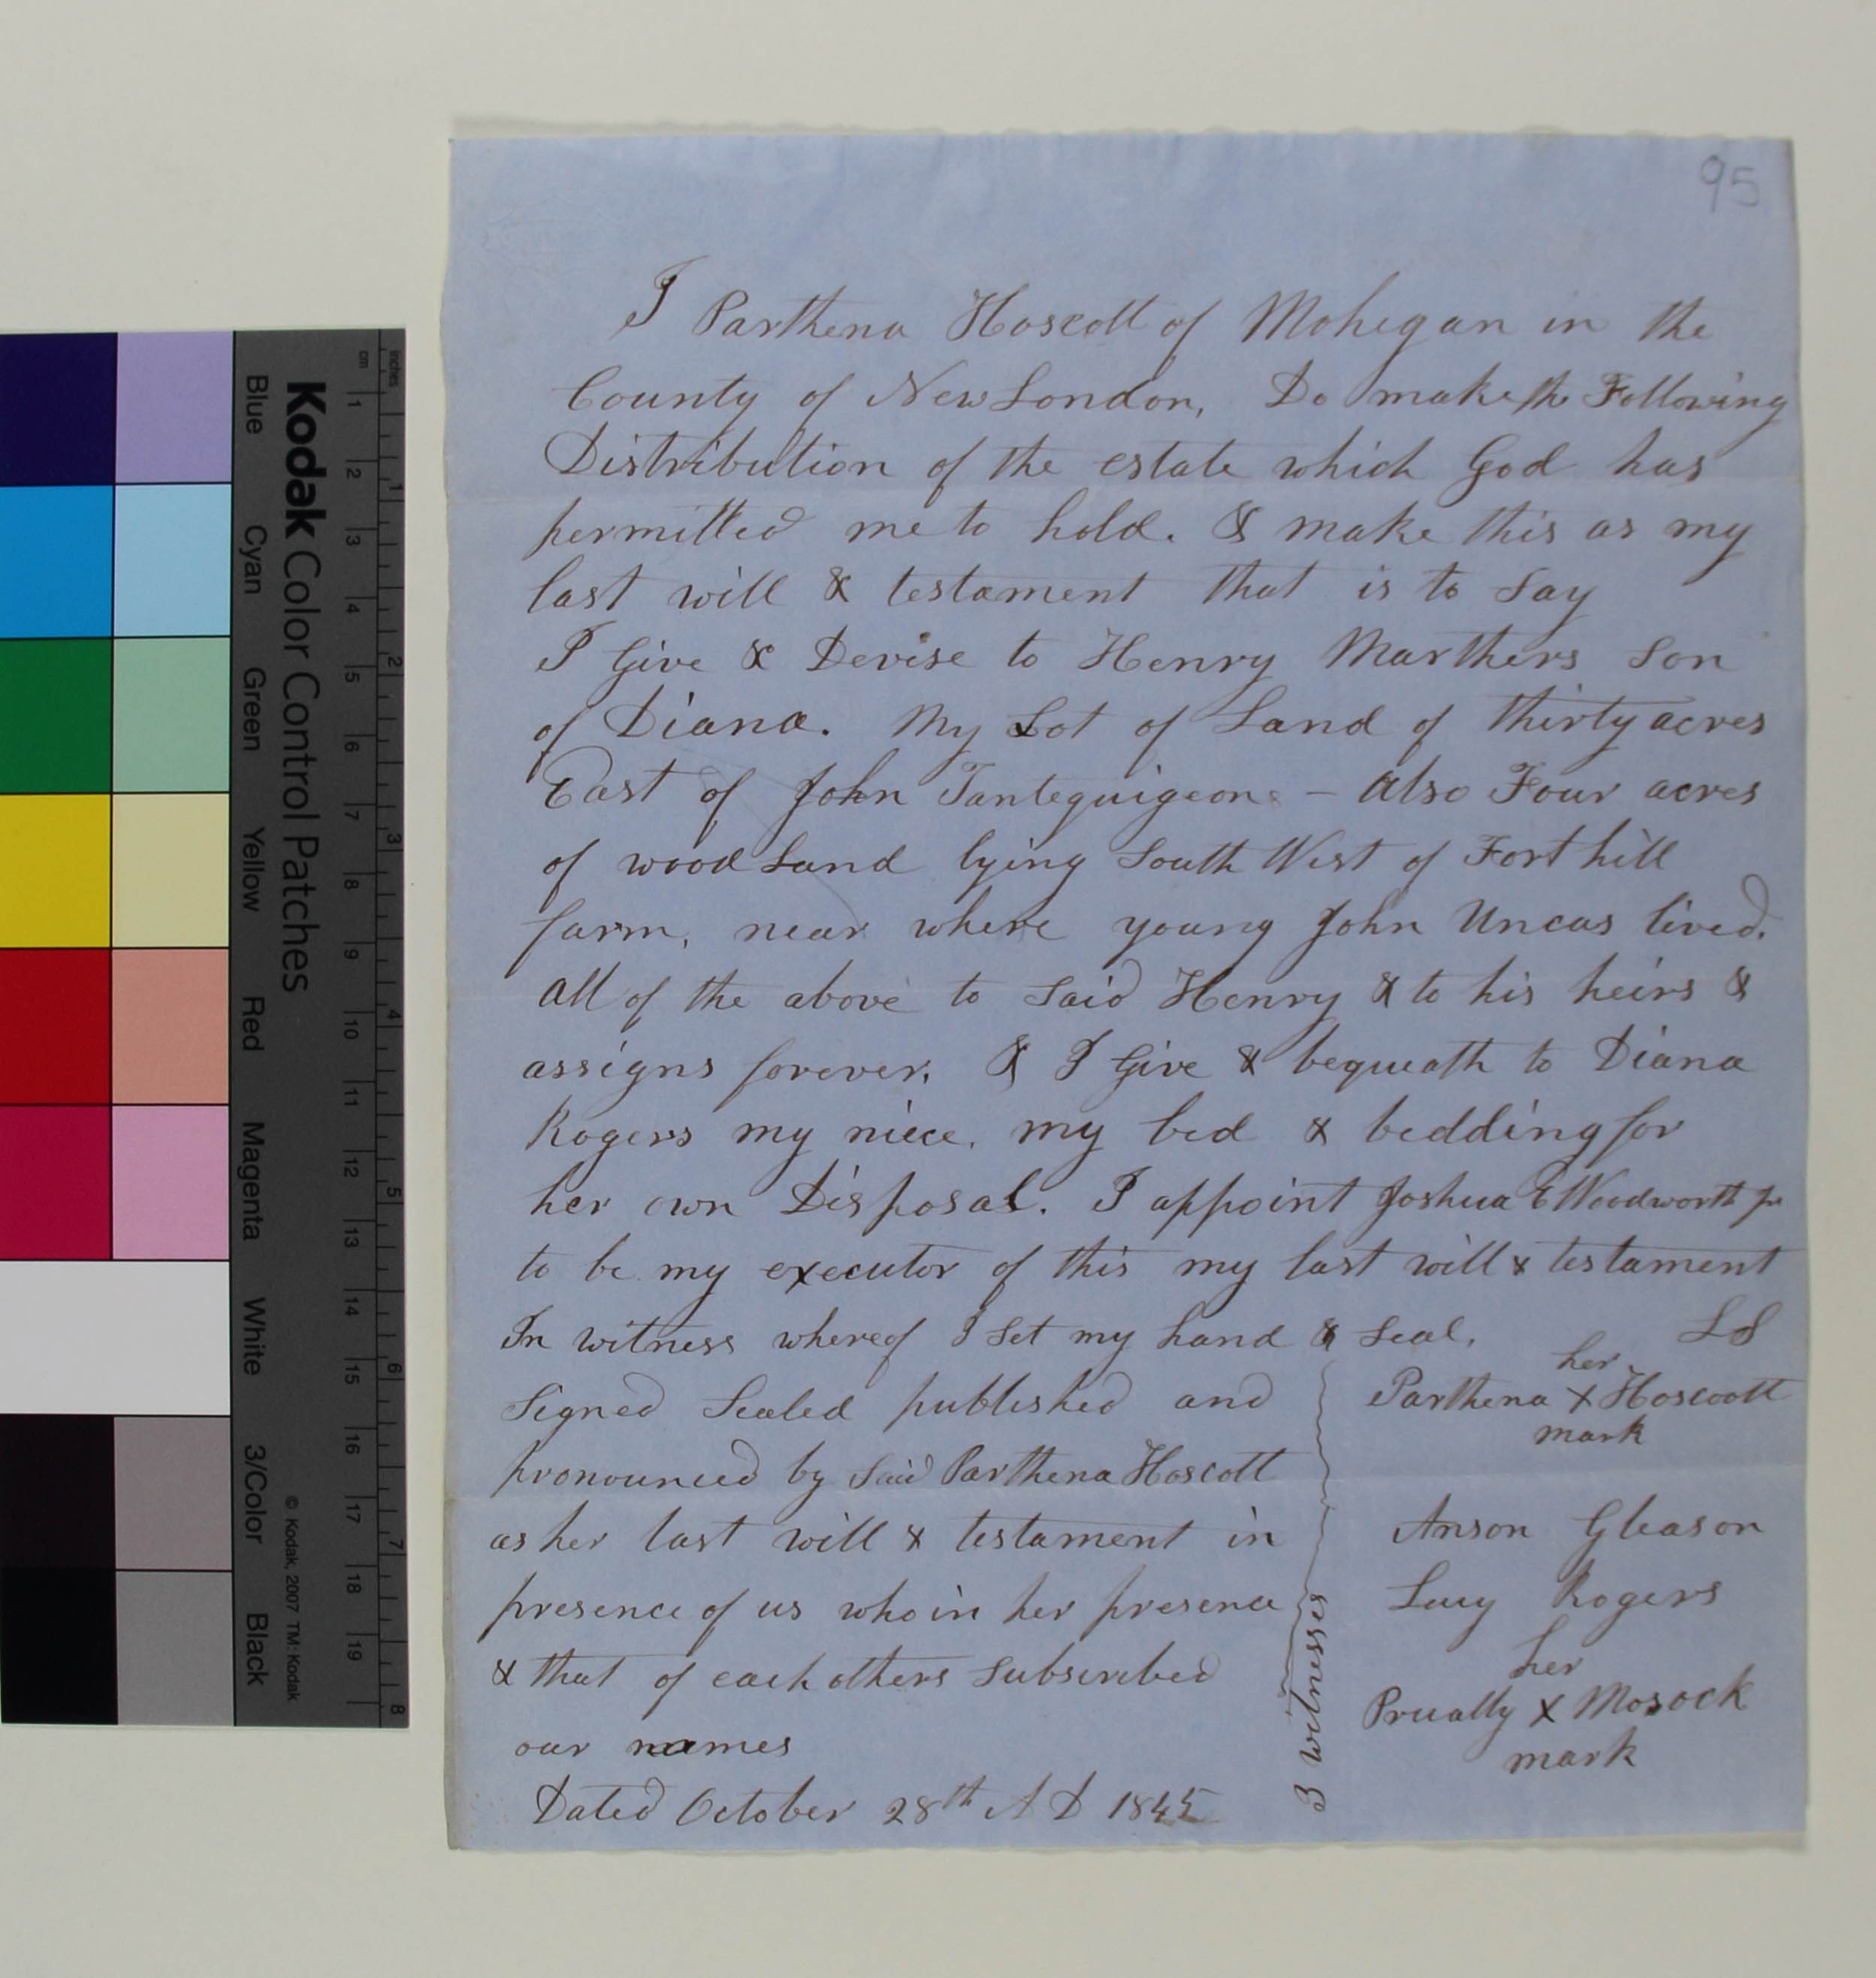 95
I Parthena Hoscott of Mohegan in the
County of New London, Do make the Following
Distribution of the estate which God has
permitted me to hold. & make this as my
last will & testament that is to Say
I Give & Devise to Henry Marthers Son
of Diana. My Lot of Land of thirty acres
East of John Tantequigeon - Also Four acres
of wood Land lying South West of Fort hill
farm, near where young John Uncas lived.
All of the above to Said Henry & to his heirs &
assigns forever, & I Give & bequeath to Diana
Rogers my niece. my bed & bedding for
her own Disposal. I appoint Joshua E Woodworth Jr
to be my executor of this my last will & testament
In witness whereof I Set my hand & Seal. LS
Signed Sealed published and
pronounced by Said Parthena Hoscott
as her last will & testament in
presence of us who in her presence
& that of each others Subscribed
our names
Dated October 28th A D 1845
3 witnesses
her
Parthena X Hoscoott
mark
Anson Gleason
Lucy Rogers
her
Prually X Mosock
mark
inches
cm
1 2 3 4 5 6 7 8
1 2 3 4 5 6 7 8 9 10 11 12 13 14 15 16 17 18 19
Kodak Color Control Patches
© Kodak, 2007 TM: Kodak
Blue Cyan Green Yellow Red Magenta White 3/Color Black